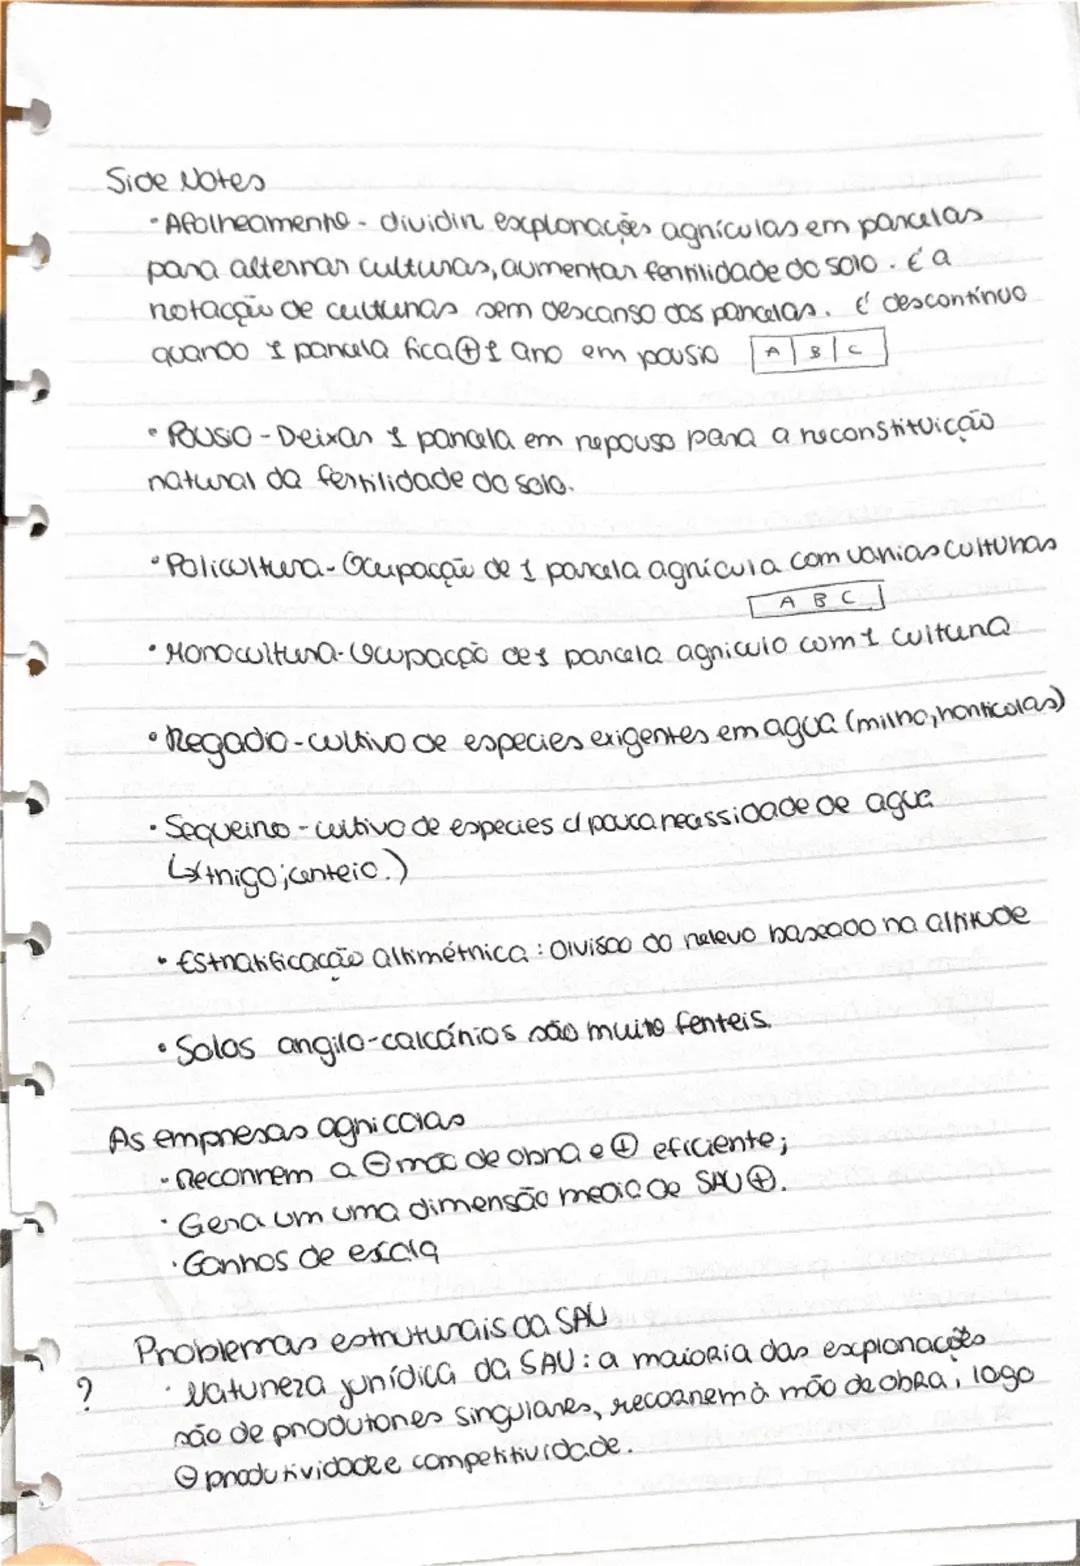 Side Notes
• Afolheamento - dividir explorações agrículas em parcelas
para alternar culturas, aumentar fertilidade do solo. É a
rotação de culturas sem descanso das parcelas. É descontínuo
quando 1 parcela fica ⊕ 1 ano em pousio A | B | C
• Pousio - Deixar 1 parcela em repouso para a reconstituição
natural da fertilidade do solo.
• Policultura - Ocupação de 1 parcela agrícula com varias culturas
A B C
• Monocultura - Ocupação de 1 parcela agriculo com 1 cultura
• Regadio - cultivo de especies exigentes em agua (milho, horticolas)
• Sequeiro - cultivo de especies c/ pouca necessidade de agua
(trigo; centeio.)
• Estratificacção altimétrica : Divisão do relevo baseado na altitude
• Solos argilo-calcários são muito ferteis.
As empresas agricolas
• Recorrem a ⊖ mão de obra e ⊕ eficiente;
• Gera um uma dimensão media de SAU ⊕.
• Ganhos de escala
Problemas estruturais da SAU
? • Natureza jurídica da SAU : a maioria das explorações
são de produtores singulares, recorrem à mão de obra, logo
⊖ produtividade e competitividade.